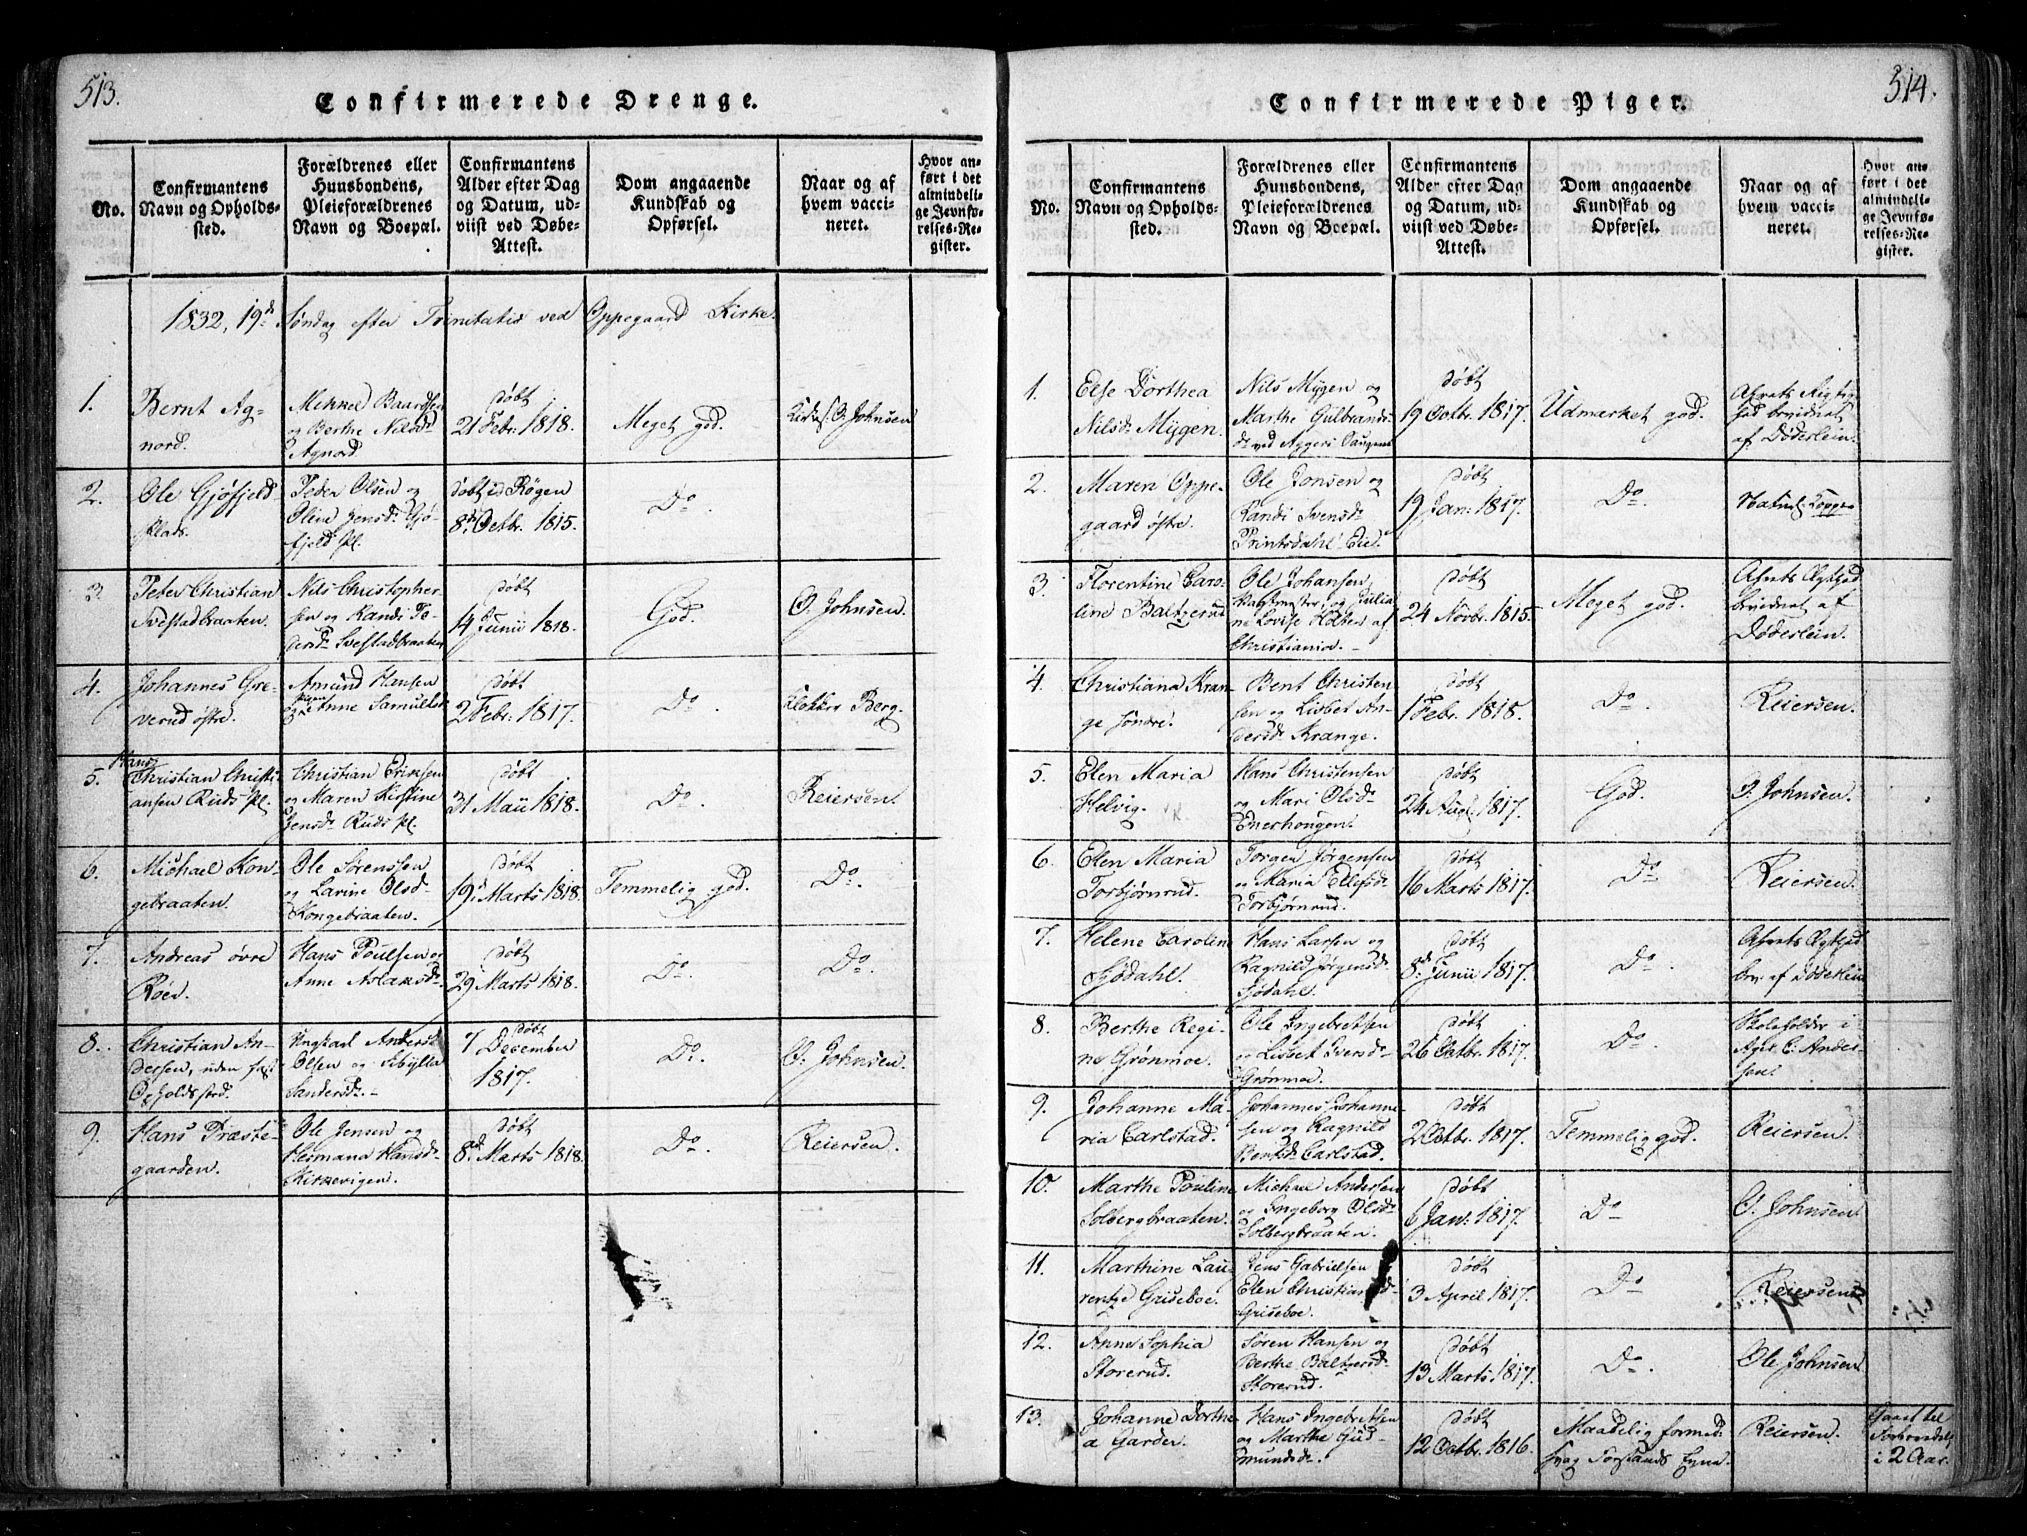 513.
Confirmerede Drenge.
No.
Confirmantens
Navn og Opholds-
sted.
Forældrenes eller
Huusbondens,
Pleieforældrenes
Navn og Boepæl.
Confirmantens
Alder efter Dag
og Datum, ud-
viist ved Døbe-
Attest.
Dom angaaende
Kundskab og
Opførsel.
Naar og af
hvem vacci-
neret.
Hvor an-
ført i det
almindeli-
ge Jevnfø-
relses-Re-
gister.
1832, 19de Søndag efter Trinitatis ved Oppegaard Kirke.
1.
Bernt Ag-
nord.
Mikkel Baardsen
og Berthe Nilsd:
Agnord
Døbt
21 Febr: 1818.
Meget god.
Kirkes. O. Johnsen
2.
Ole Gjøfjeld
Plads.
Peder Olsen og
Oline Jensd: Gjø-
fjeld Pl.
Døbt i Røgen
8de Octbr. 1815.
Do.
3
Peter Christian
Svestadbraaten.
Nils Christopher
sen og Randi Pe-
dersd: Svestadbraaten
Døbt
14 Junii 1818.
God.
O. Johnsen.
4.
Johannes Gre-
verud østre.
Amund Hansen
og Anne Samuelsd:
Døbt
2 Febr: 1817.
Do.
Klokker Berg.
5.
Hans
Christian Christi-
ansen Ruds Pl.
Christian Eriksen
og Maren Kirstine
Jensd: Ruds Pl.
Døbt
31 Maii 1818.
Do.
Reiersen.
6.
Michael Kon-
gebraaten.
Ole Sørenssen
og Larine Olsd:
Kongebraaten.
Døbt
19de Marts 1818.
Temmelig god.
Do.
7.
Andreas øvre
Roer.
Hans Poulsen og
Anne Aslaksd:
Døbt
29 Marts 1818.
Do.
Do.
8.
Christian An-
dersen, uden fast
Opholdssted.
Ungkarl Anders
Olsen og Sibylla
Sandersd:
Døbt
7 December
1817.
Do.
O. Johnsen.
9.
Hans Præste-
gaarden.
Ole Jensen og
Hermana Hansd:
Kirkevigen.
Døbt
8de Marts 1818.
Do.
Reiersen.
514.
Confirmerede Piger.
No.
Confirmantens
Navn og Opholds-
sted.
Forældrenes eller
Huusbondens,
Pleieforældrenes
Navn og Boepæl.
Confirmantens
Alder efter Dag
og Datum, ud-
viist ved Døbe-
Attest.
Dom angaaende
Kundskab og
Opførsel.
Naar og af
hvem vacci-
neret.
Hvor an-
ført i det
almindeli-
ge Jevnfø-
relses-Re-
gister.
1.
Else Dorthea
Nilsd: Mygen.
Nils Mygen og
Marthe Gulbrands
d: ved Aggers
Døbt
19 Octbr. 1817.
Udmærket god.
Afsats Rigtig-
hed bevidnet
af Døderlein.
2.
Maren Oppe-
gaard østre.
Ole Jonsen og
Randi Svensd:
Printsdahls Eie.
Døbt
19 Jan: 1817.
Do.
Naturl. Kopper
3.
Florentine Caro-
line Baltzerud
Ole Johansen,
og Julia
ne Lovise Holter af
Christiania.
Døbt
24 Novbr. 1815.
Meget god.
bevidnet af
Døderlein.
4.
Christiana Kran-
ge søndre.
Bent Christen-
sen og Lisbet An-
dersd: Krange.
Døbt
1 Febr. 1818.
Do.
Reiersen.
5.
Elen Maria
Helvig.
Hans Christensen
og Mari Olsd:
Enerhougen.
Døbt
24 Aug. 1817.
God.
O. Johnsen.
6.
Elen Maria
Torbjørnrud.
Torgen Jørgensen
og Maria Ellefsd:
Torbjørnrud.
Døbt
16 Marts 1817.
Do.
Reiersen.
7.
Helene Caroline
Sjødahl.
Hans Larsen og
Ragnild Jørgensd:
Sjødahl.
Døbt
8de Junii 1817.
Do.
bev: af Døderlein
8.
Berthe Regi-
ne Grønmoe.
Ole Ingebretsen
og Lisbet Iversd:
Grønmoe.
Døbt
26 Octbr. 1817.
Do.
Skoleholder i
Ager C. Ander-
sen.
9.
Johanne Ma-
ria Carlstad.
Johannes Johanne-
sen og Ragnild
Bentsd: Carlstad.
Døbt
2 Octbr. 1817.
Temmelig god.
Reiersen.
10.
Marthe Pouline
Solbergbraaten.
Michael Andersen
og Ingeborg Olsd:
Solbergbraaten.
Døbt
6 Jan: 1817.
Do
O. Johnsen.
11.
Marthine Lau-
rentze Griseboe.
Jens Gabrielsen
Elen Christians d:
Griseboe.
Døbt
3 April 1817.
Do.
Reiersen
12.
Anne Sophia
Storerud.
Søren Hansen og
Berthe Baltzersd:
Storerud.
Døbt
13 Marts 1817.
Do.
Ole Johnsen
13.
Johanne Dorthe-
a Garder.
Hans Ingebretsen
og Marthe Gud-
mundsd:
Døbt
12 Octbr. 1816.
Maadelig formed:
svag Forstands Evne.
Reiersen.
Gaaet til
Forberedelse
i 2 Aar.